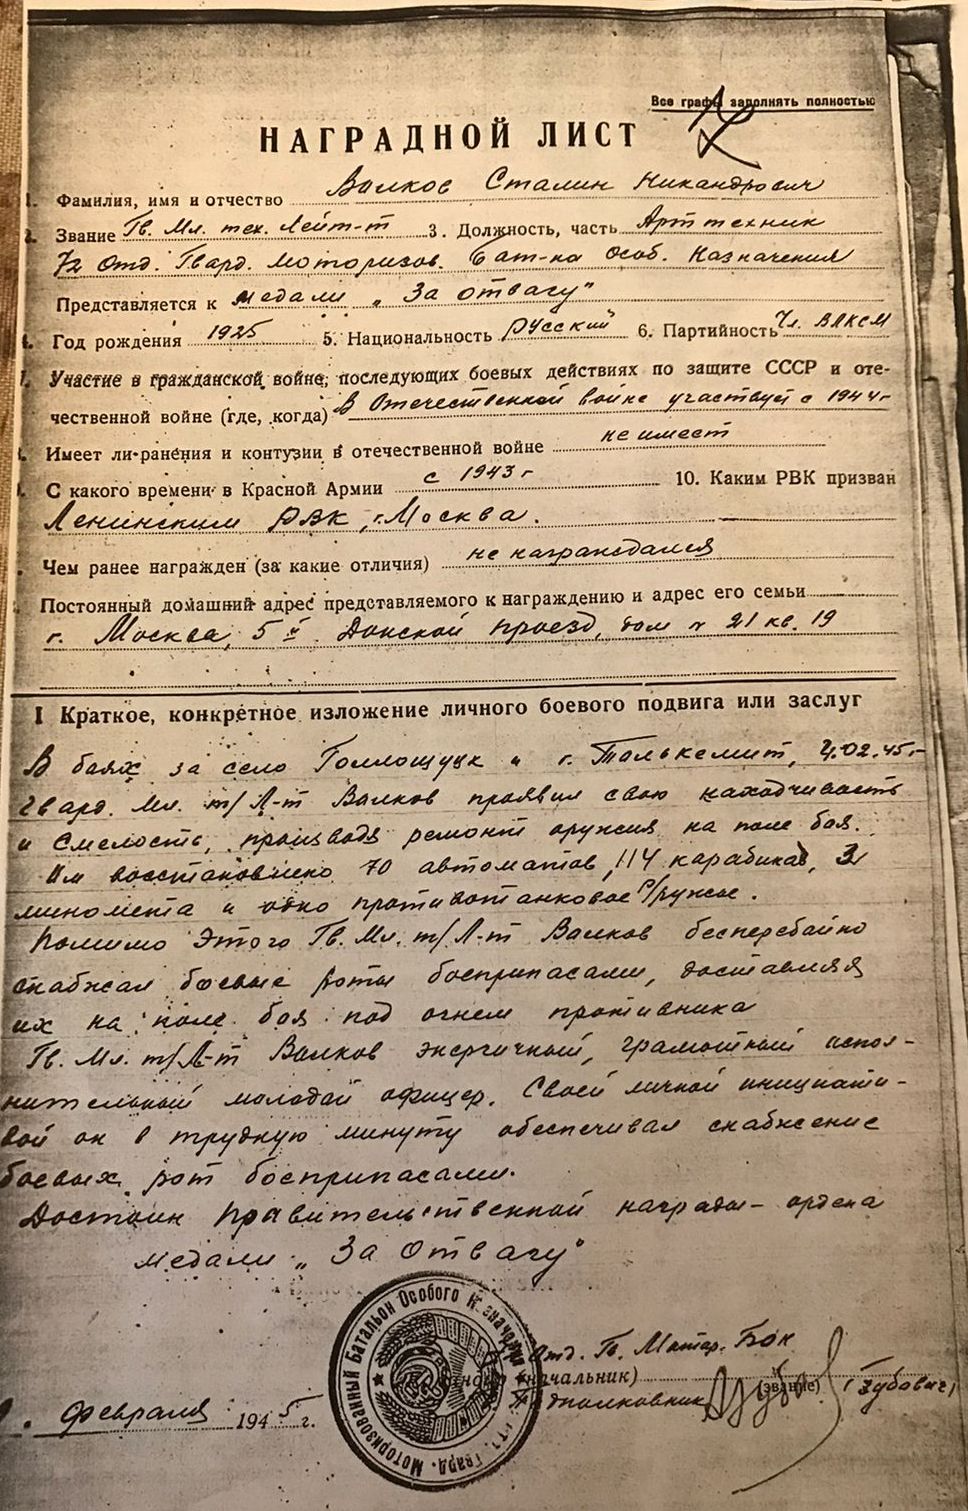 Все графы заполнять полностью
НАГРАДНОЙ ЛИСТ
Фамилия, имя и отчество Валков Сталин Никандрович
Звание Гв. Мл. тех. Лейт-т 3. Должность, часть Арттехник
72 Отд. Гвард. моторизов. бат-на Особ. Назначения
Представляется к медали „За отвагу"
Год рождения 1925 5. Национальность русский 6. Партийность Чл. ВЛКСМ
Участие в гражданской войне, последующих боевых действиях по защите СССР и оте-
чественной войне (где, когда) В Отечественной войне участвует с 1944г
Имеет ли ранения и контузии в отечественной войне не имеет
С какого времени в Красной Армии с 1943 г 10. Каким РВК призван
Ленинским РВК, г. Москва.
Чем ранее награжден (за какие отличия) не награждался
Постоянный домашний адрес представляемого к награждению и адрес его семьи
г. Москва, 5й Донской проезд, дом № 21 кв. 19
I Краткое, конкретное изложение личного боевого подвига или заслуг
В боях за село и г. Толькемит, 02.45г-
Гвард. Мл. т/Л-т Валков проявил свою находчивость
и смелость, производя ремонт оружия на поле боя.
Им восстановлено 70 автоматов, 114 карабинов, 3
миномета и одно противотанковое ружье.
Помимо этого Гв. Мл. т/Л-т Валков бесперебойно
снабжал боевые роты боеприпасами, доставляя
их на поле боя под огнем противника
Гв. Мл. т/Л-т Валков энергичный, грамотный испол-
нительный молодой офицер. Своей личной инициати-
вой он в трудную минуту обеспечивал снабжение
боевых рот боеприпасами.
Достоин правительственной награды- ордена
медали „За Отвагу"
Отд. Гв. Мотор. БОН
начальник)
(звание) (Зубович)
подполковник
Моторизованный Батальон Особого Назначения
Гвард.
февраля 1945 г.